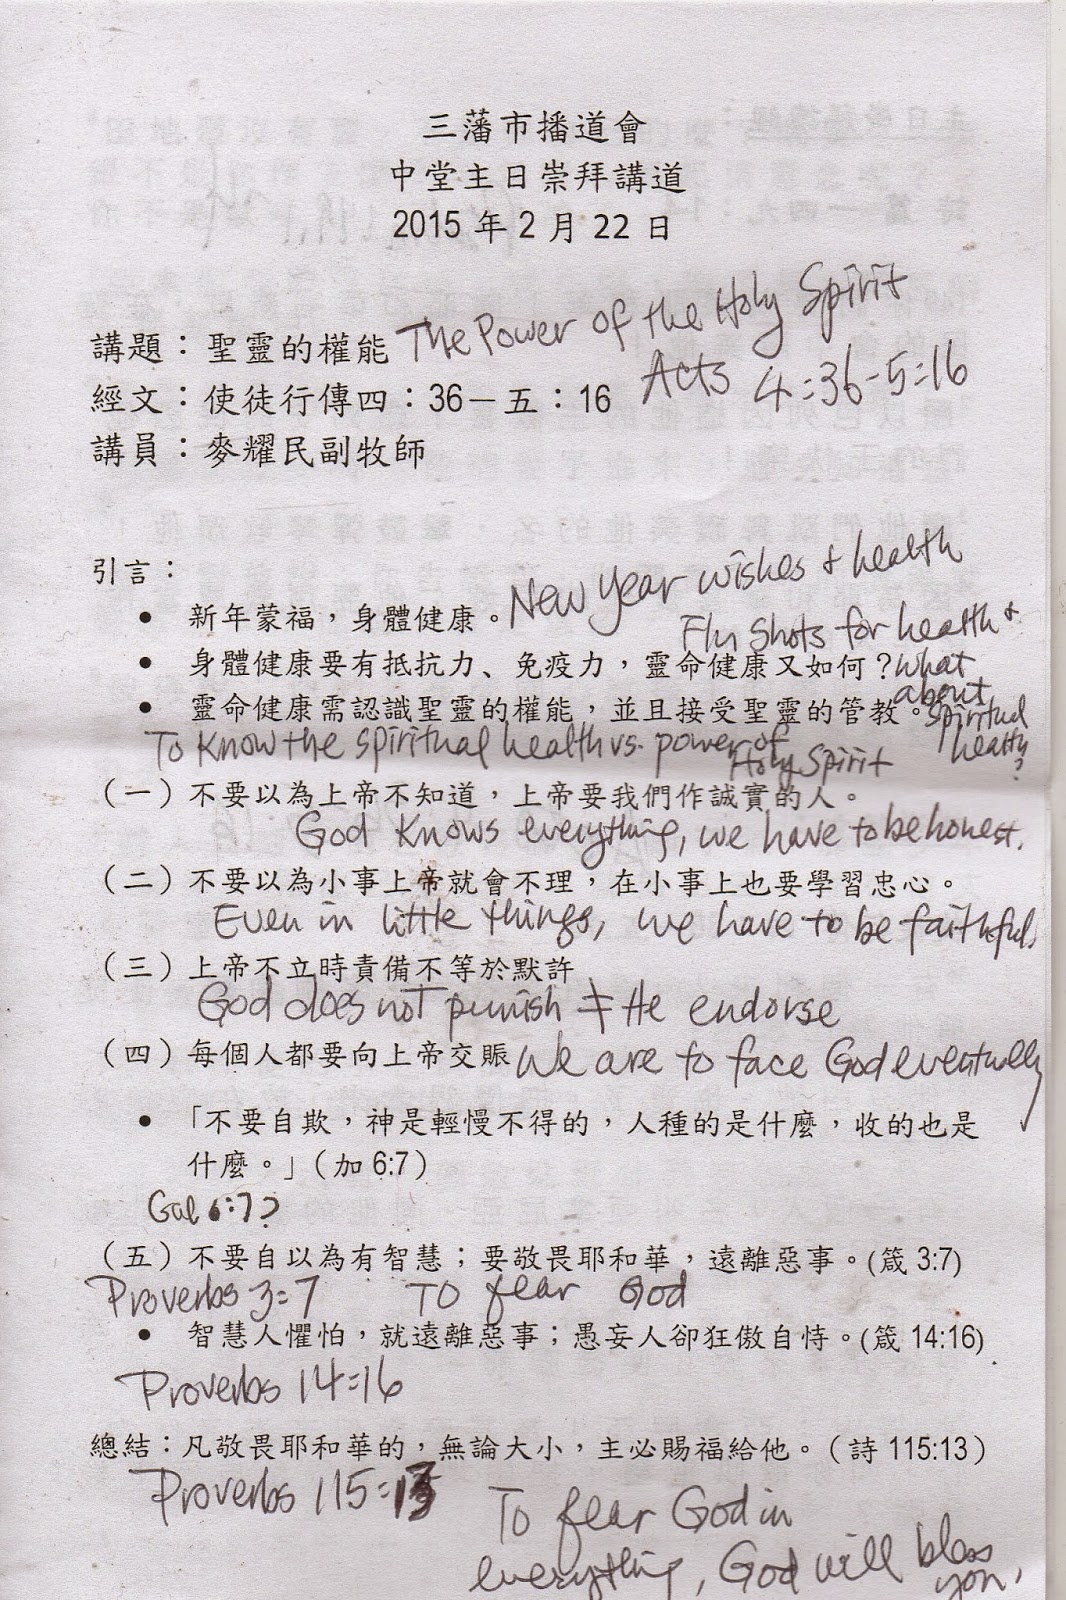 三藩市播道會
中堂主日崇拜講道
2015 年 2 月 22 日
講題：聖靈的權能 The Power of the Holy Spirit
經文：使徒行傳四：36－五：16 Acts 4:36-5:16
講員：麥耀民副牧師
引言：
• 新年蒙福，身體健康。New Year wishes & health
Flu shots for health &
• 身體健康要有抵抗力、免疫力，靈命健康又如何？what
about
• 靈命健康需認識聖靈的權能，並且接受聖靈的管教。spiritual
health?
To know the spiritual health vs. power of
Holy Spirit
（一）不要以為上帝不知道，上帝要我們作誠實的人。
God knows everything, we have to be honest.
（二）不要以為小事上帝就會不理，在小事上也要學習忠心。
Even in little things, we have to be faithful.
（三）上帝不立時責備不等於默許
God does not punish ≠ He endorse
（四）每個人都要向上帝交賬 We are to face God eventually
• 「不要自欺，神是輕慢不得的，人種的是什麼，收的也是
什麼。」（加 6:7）
Gal 6:7?
（五）不要自以為有智慧；要敬畏耶和華，遠離惡事。(箴 3:7)
Proverbs 3:7 To fear God
• 智慧人懼怕，就遠離惡事；愚妄人卻狂傲自恃。(箴 14:16)
Proverbs 14:16
總結：凡敬畏耶和華的，無論大小，主必賜福給他。（詩 115:13）
Proverbs 115:13
To fear God in
everything, God will bless
you.